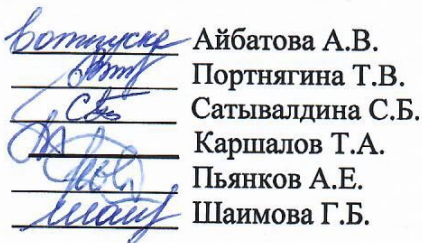 в отпуске Айбатова А.В.
Портнягина Т.В.
Сатывалдина С.Б.
Каршалов Т.А.
Пьянков А.Е.
Шаимова Г.Б.